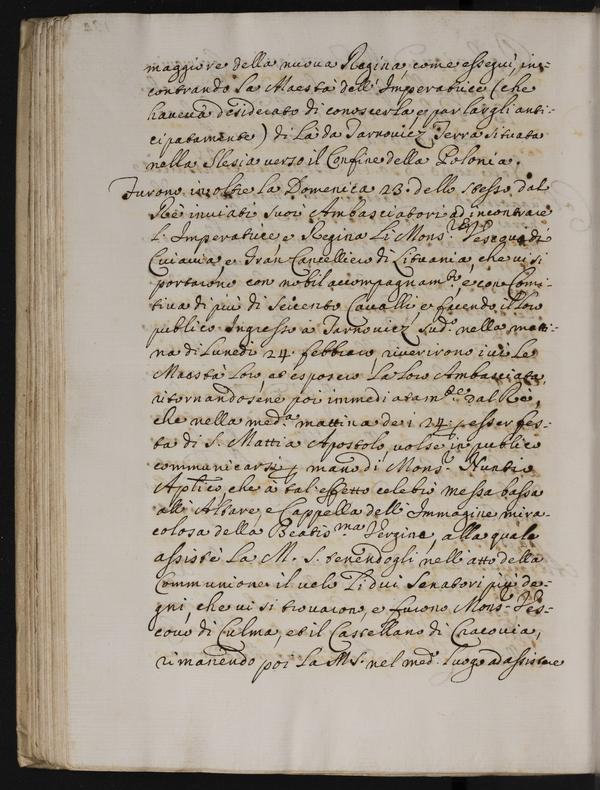 maggiore della nuova Regina, come esseguì, in-
contrando La Maestà dell'Imperatrice (che
haveva desiderato di conoscerla e parlargli anti-
cipatamente) di Là da Tarnoviez Terra situata
nella Slesia verso il Confine della Polonia.
Furono inoltre La Domenica 23. dello stesso dal
Rè inviati suoi Ambasciatori ad incontrare
L'Imperatrice, e Regina Li Mons.ri Vescovo di
Cuiavia, e Gran Cancelliero di Lituania, che vi si
portarono con nobil accompagnam.to, e con Comi-
tiva di più di Seicento Cavalli, e facendo il loro
publico Ingresso à Tarnoviez sud.o nella matti-
na di Lunedì 24. febbraro, riverirono ivi Le
Maestà Loro, et esposero La loro Ambasciata,
ritornandosene poi immediatam.te dal Rè,
che nella med.a mattina dei 24. p esser fes-
ta di S. Mattia Apostolo, volse in publico
communicarsi p mano di Mons.r Nuntio
Aplico, che à tal effetto celebrò messa bassa
all'Altare, e Cappella dell'Immagine mira-
colosa della Beatis.ma Vergine, alla quale
assistè La M. S. tenendogli nell'atto della
Communione il velo Li dui Senatori più de-
gni, che vi si trovarono, e furono Mons.r Ves-
covo di Culma, et il Castellano di Cracovia,
rimanendo poi La M. S. nel med.o luogo ad assistere